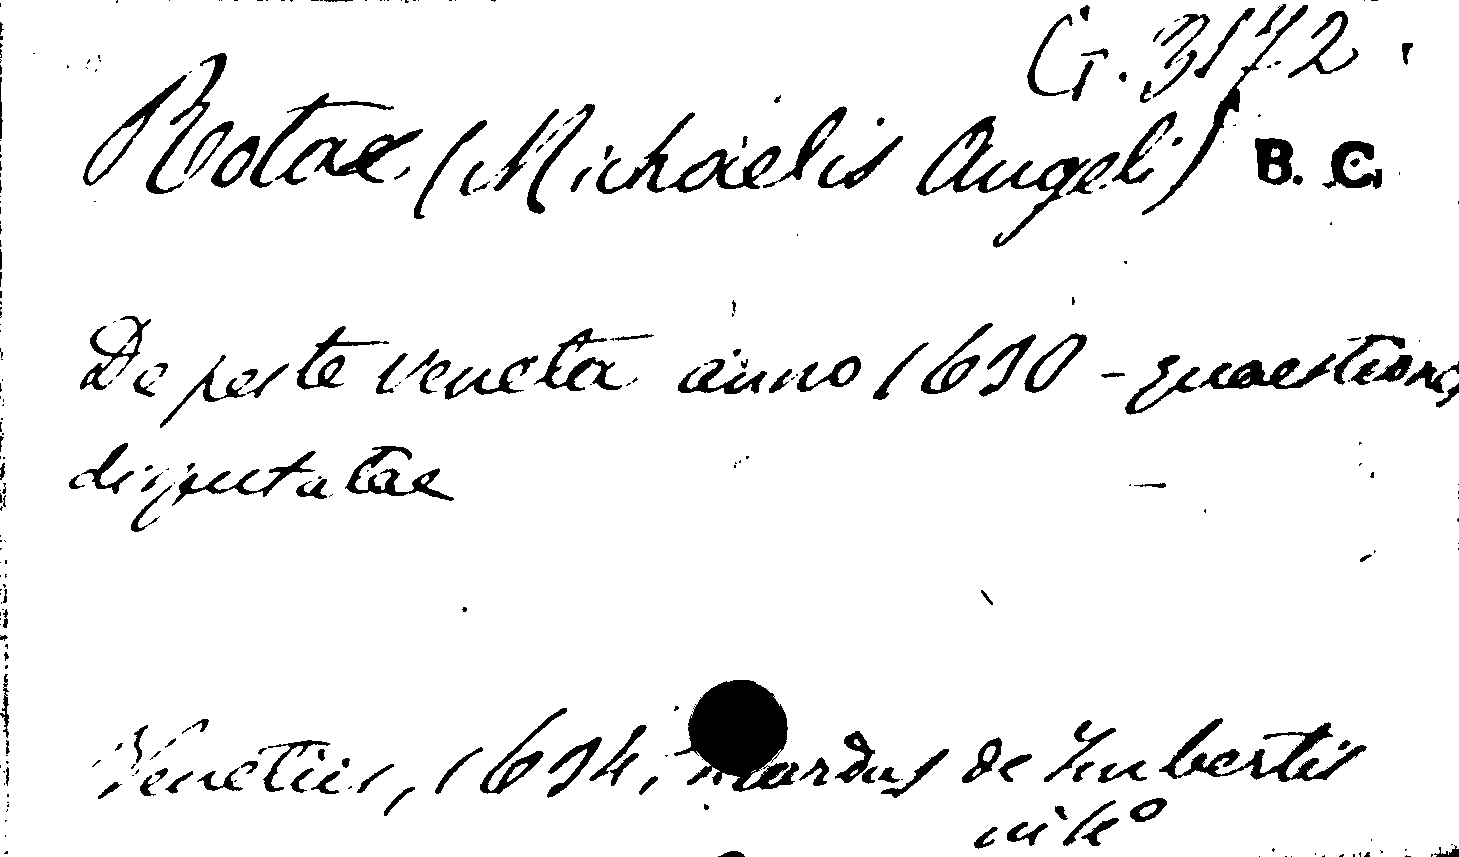 G. 3172.
Rotae (Michaelis Angeli) B. C.
De peste veneta anno 1630 - quaestiones
disputatae
Venetiis, 1634, de Imbertis
in 4º